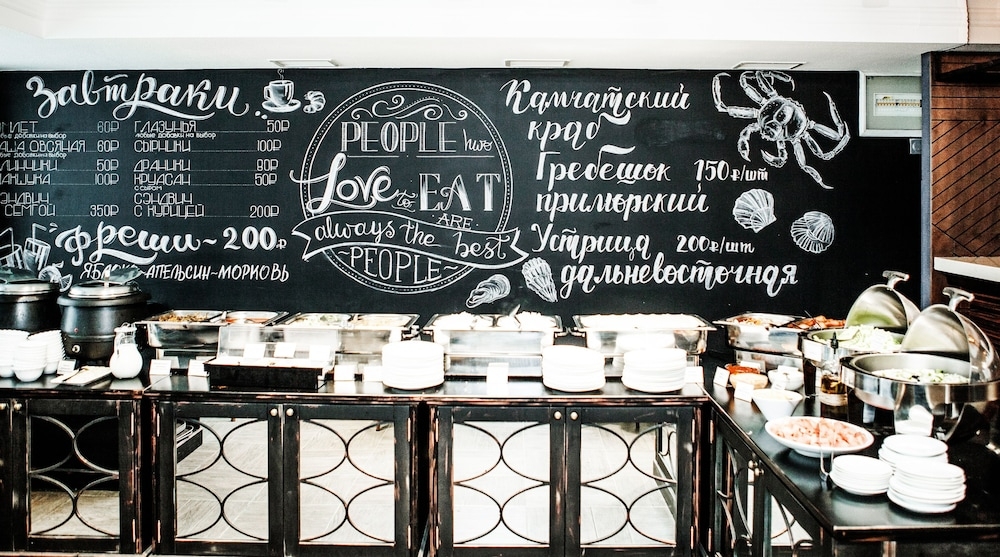 Завтраки
МЛЕТ 80₽
ЫЕ ДОБАВКИ НА ВЫБОР
АША ОВСЯНАЯ 80₽
ЛИНЧИКИ 50₽
АКШУКА 100₽
ЭНДВИЧ
СЕМГОЙ 350₽
ГЛАЗУНЬЯ 50₽
ЛЮБЫЕ ДОБАВКИ НА ВЫБОР
СЫРНИКИ 100₽
ДРАНИКИ 80₽
КРУАСАН 50₽
С СЫРОМ
СЭНДВИЧ
С КУРИЦЕЙ 200₽
Фреши ~ 200₽
ЯБЛОКО-АПЕЛЬСИН-МОРКОВЬ
PEOPLE hwo
Love to EAT
ARE
always the best
~PEOPLE~
Камчатский
краб
Гребешок 150₽/шт
приморский
Устрица 200₽/шт
дальневосточная